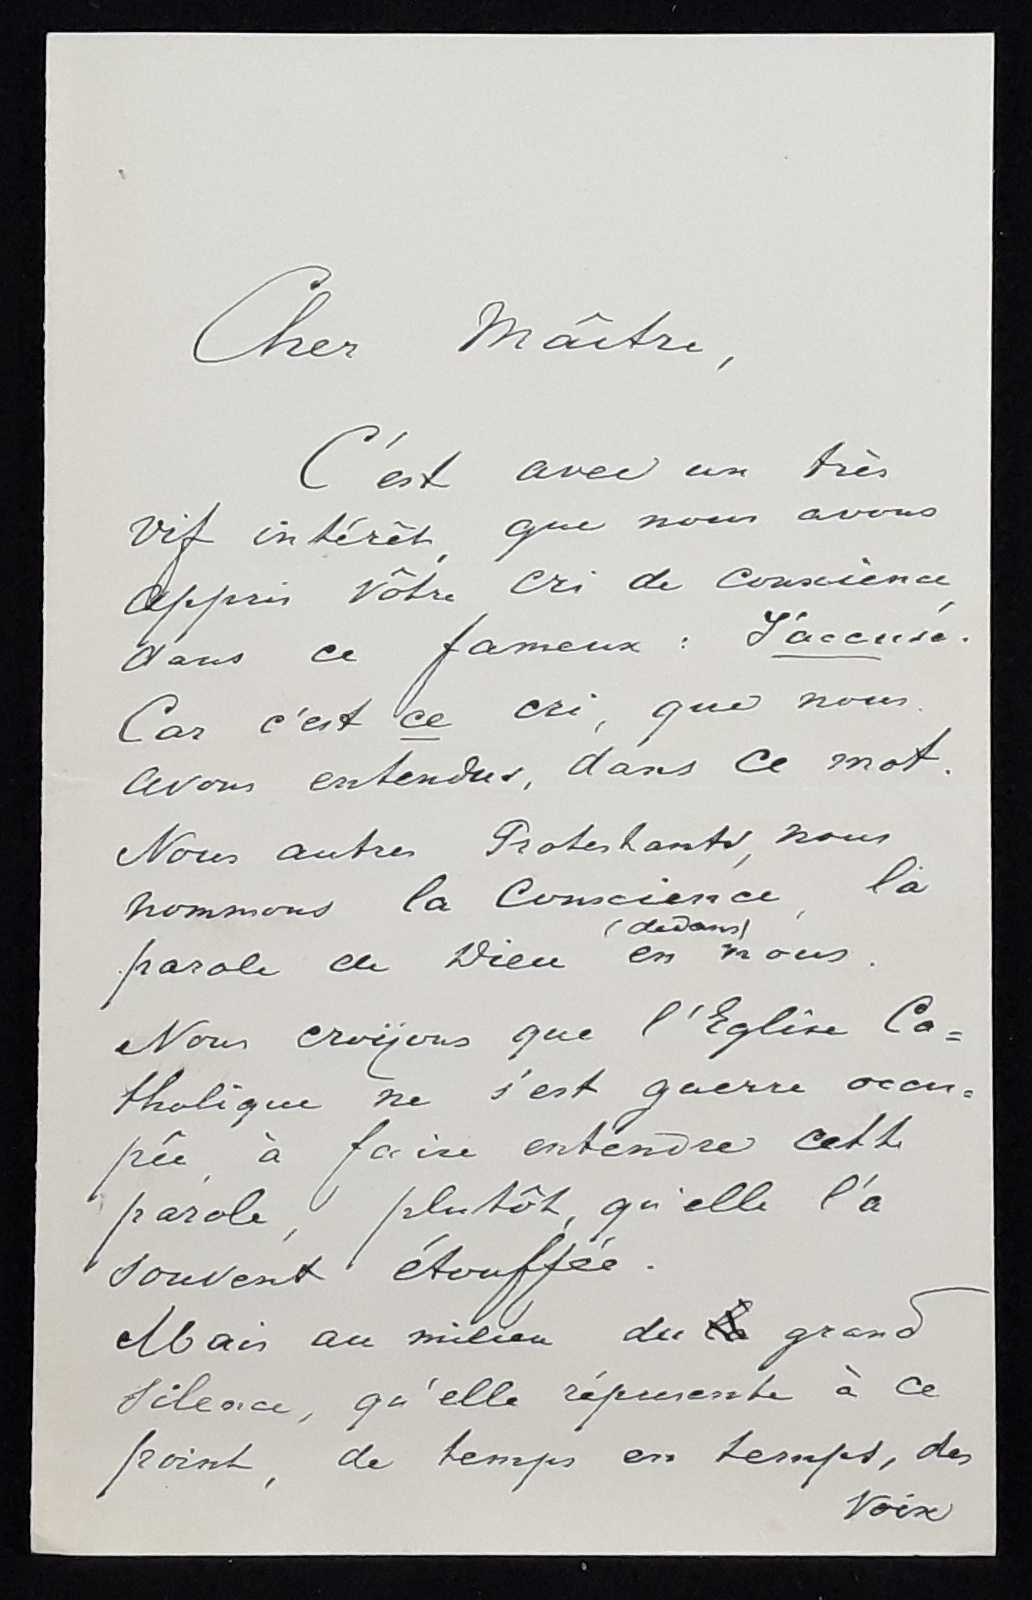 Cher Maître,
C'est avec un très
vif intérêt, que nous avons
appris vôtre cri de conscience,
dans ce fameux : J'accuse.
Car c'est ce cri, que nous
avons entendus, dans ce mot.
Nous autres Protestants, nous
nommons la Conscience, la
parole de Dieu en (dedans) nous.
Nous croÿons que l'Eglise Ca=
tholique ne s'est guerre occu=
pée, à faire entendre cette
parole, plutôt, qu'elle l'a
souvent étouffée.
Mais au milieu du grand
silence, qu'elle répresente à ce
point, de temps en temps, des
voix